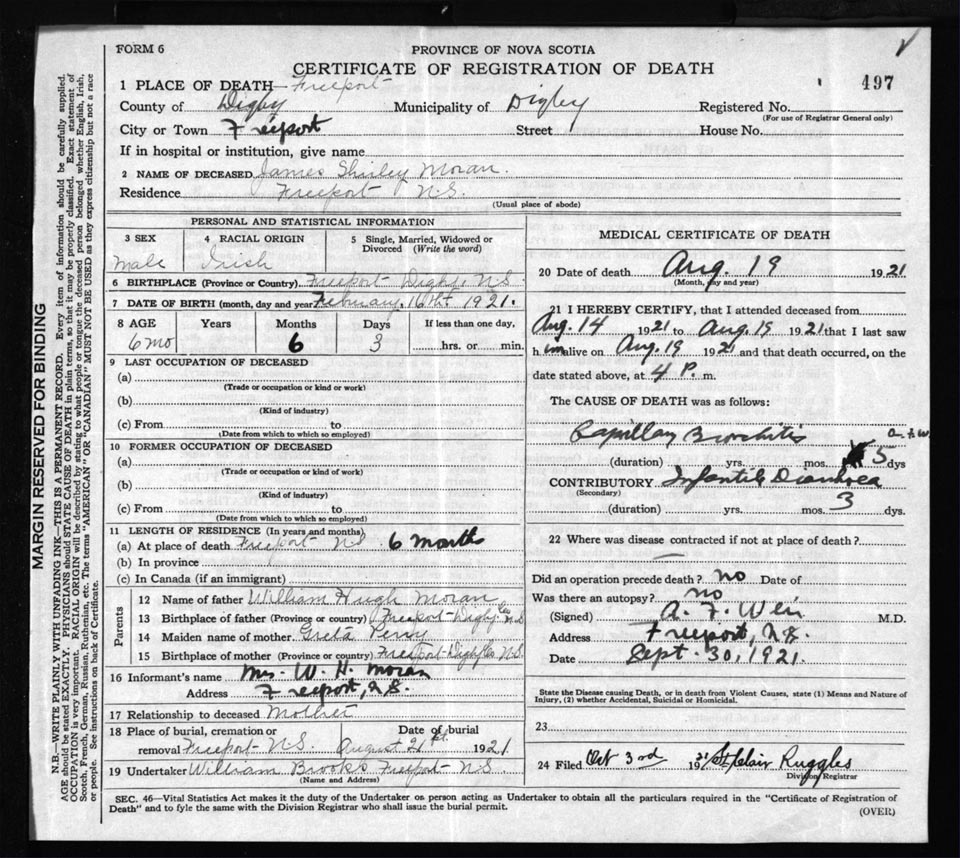 FORM 6
PROVINCE OF NOVA SCOTIA
CERTIFICATE OF REGISTRATION OF DEATH
497
1 PLACE OF DEATH— Freeport
County of Digby Municipality of Digby Registered No.
(For use of Registrar General only)
City or Town Freeport Street House No.
If in hospital or institution, give name
2 NAME OF DECEASED James Shirley Moran.
Residence Freeport N.S.
(Usual place of abode)
PERSONAL AND STATISTICAL INFORMATION
3 SEX 4 RACIAL ORIGIN 5 Single, Married, Widowed or Divorced (Write the word)
Male Irish
6 BIRTHPLACE (Province or Country) Freeport Digby, N.S.
7 DATE OF BIRTH (month, day and year) February 16th 1921.
8 AGE Years Months Days If less than one day,
6 mo 6 3 hrs. or min.
9 LAST OCCUPATION OF DECEASED
(a)
(Trade or occupation or kind or work)
(b)
(Kind of industry)
(c) From to
(Date from which to which so employed)
10 FORMER OCCUPATION OF DECEASED
(a)
(Trade or occupation or kind of work)
(b)
(Kind of industry)
(c) From to
(Date from which to which so employed)
11 LENGTH OF RESIDENCE (In years and months)
(a) At place of death Freeport N.S 6 months
(b) In province
(c) In Canada (if an immigrant)
Parents
12 Name of father William Hugh Moran
13 Birthplace of father (Province or country) Freeport-Digby Co N.S
14 Maiden name of mother Greta Perry
15 Birthplace of mother (Province or Country) Freeport-Digby Co N.S.
16 Informant's name Mrs. W. H. Moran
Address Freeport, N.S.
17 Relationship to deceased Mother
18 Place of burial, cremation or Date of burial
removal Freeport N.S. August 21st 1921
19 Undertaker William Brooks Freeport N.S
(Name and Address)
MEDICAL CERTIFICATE OF DEATH
20 Date of death Aug. 19 1921
(Month, day and year)
21 I HEREBY CERTIFY, that I attended deceased from
Aug. 14 1921 to Aug. 19 1921 that I last saw
h im alive on Aug. 19 1921 and that death occurred, on the
date stated above, at 4 P. m.
The CAUSE OF DEATH was as follows:
Capillary Bronchitis
(duration) yrs. mos. 5 dys
CONTRIBUTORY Infantile Diarrhoea
(Secondary)
(duration) yrs. mos. 3 dys.
22 Where was disease contracted if not at place of death?
Did an operation precede death? no Date of
Was there an autopsy? no
(Signed) A. F. M.D.
Address Freeport, N.S.
Date Sept. 30, 1921.
State the Disease causing Death, or in death from Violent Causes, state (1) Means and Nature of
Injury, (2) whether Accidental, Suicidal or Homicidal.
23
24 Filed Oct 3rd 1921 St Clair Ruggles
Division Registrar
SEC. 46—Vital Statistics Act makes it the duty of the Undertaker or person acting as Undertaker to obtain all the particulars required in the "Certificate of Registration of
Death" and to fyle the same with the Division Registrar who shall issue the burial permit.
(OVER)
MARGIN RESERVED FOR BINDING
N.B.—WRITE PLAINLY WITH UNFADING INK—THIS IS A PERMANENT RECORD. Every item of information should be carefully supplied.
AGE should be stated EXACTLY. PHYSICIANS should STATE CAUSE OF DEATH in plain terms, so that it may be properly classified. Exact statement of
OCCUPATION is very important. RACIAL ORIGIN will be described by stating to what people or tongue the deceased person belonged whether English, Irish,
Scotch, French, German, Russian, Ruthenian, etc. The terms "AMERICAN" or "CANADIAN" MUST NOT BE USED as they express citizenship but not a race
or people. See instructions on back of Certificate.